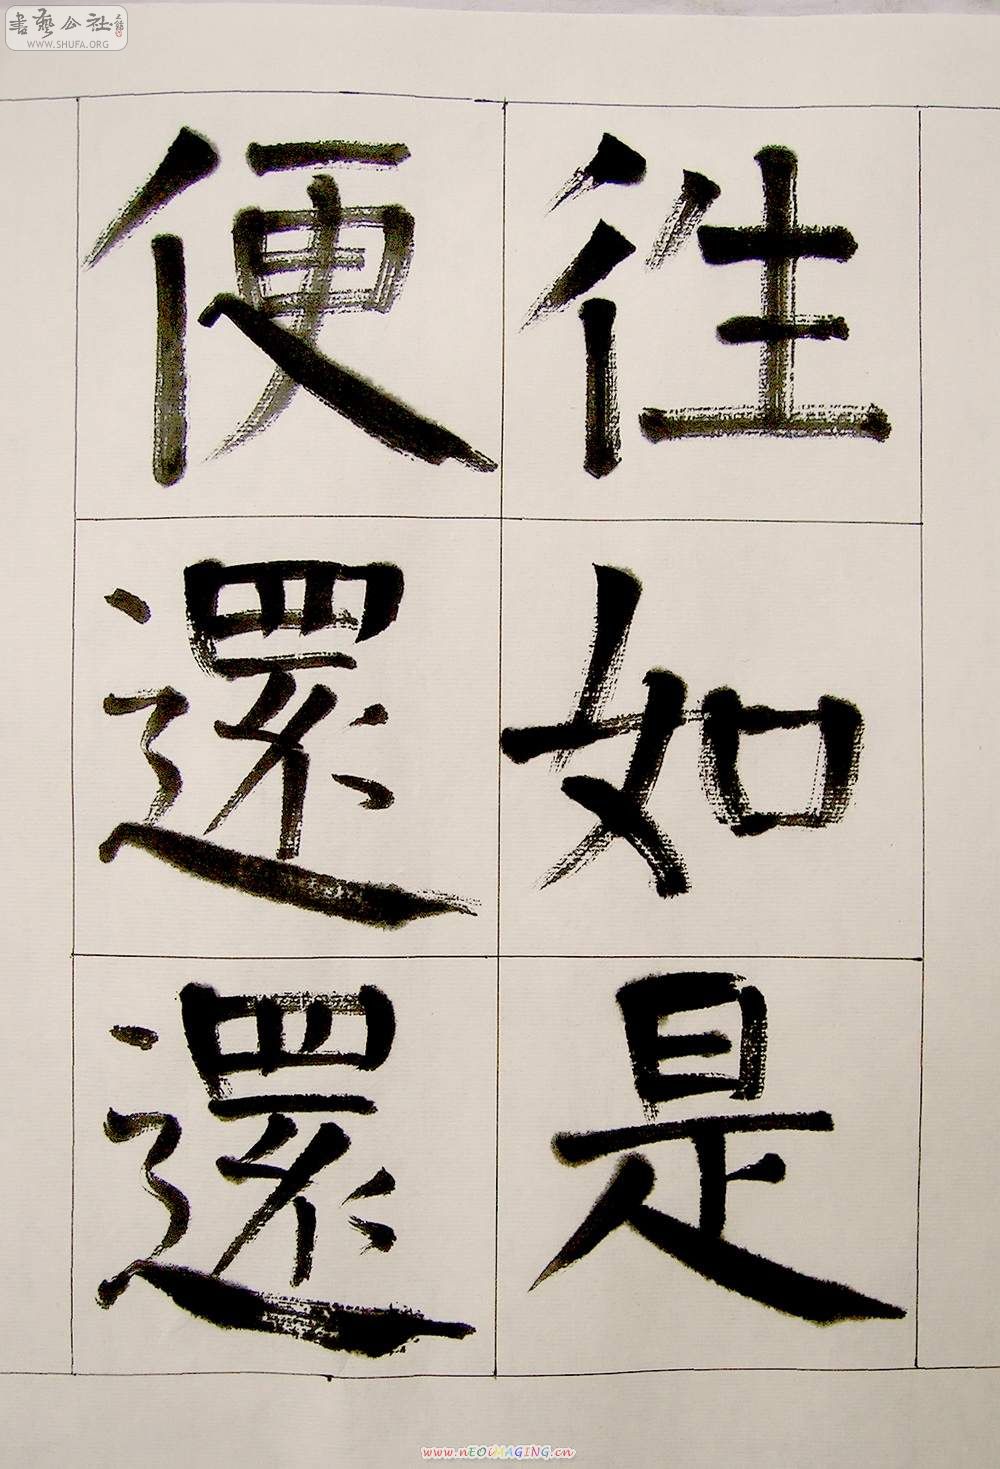 書藝公社
WWW.SHUFA.ORG
徃如是
便還還
www.nEOiMAGING.cn